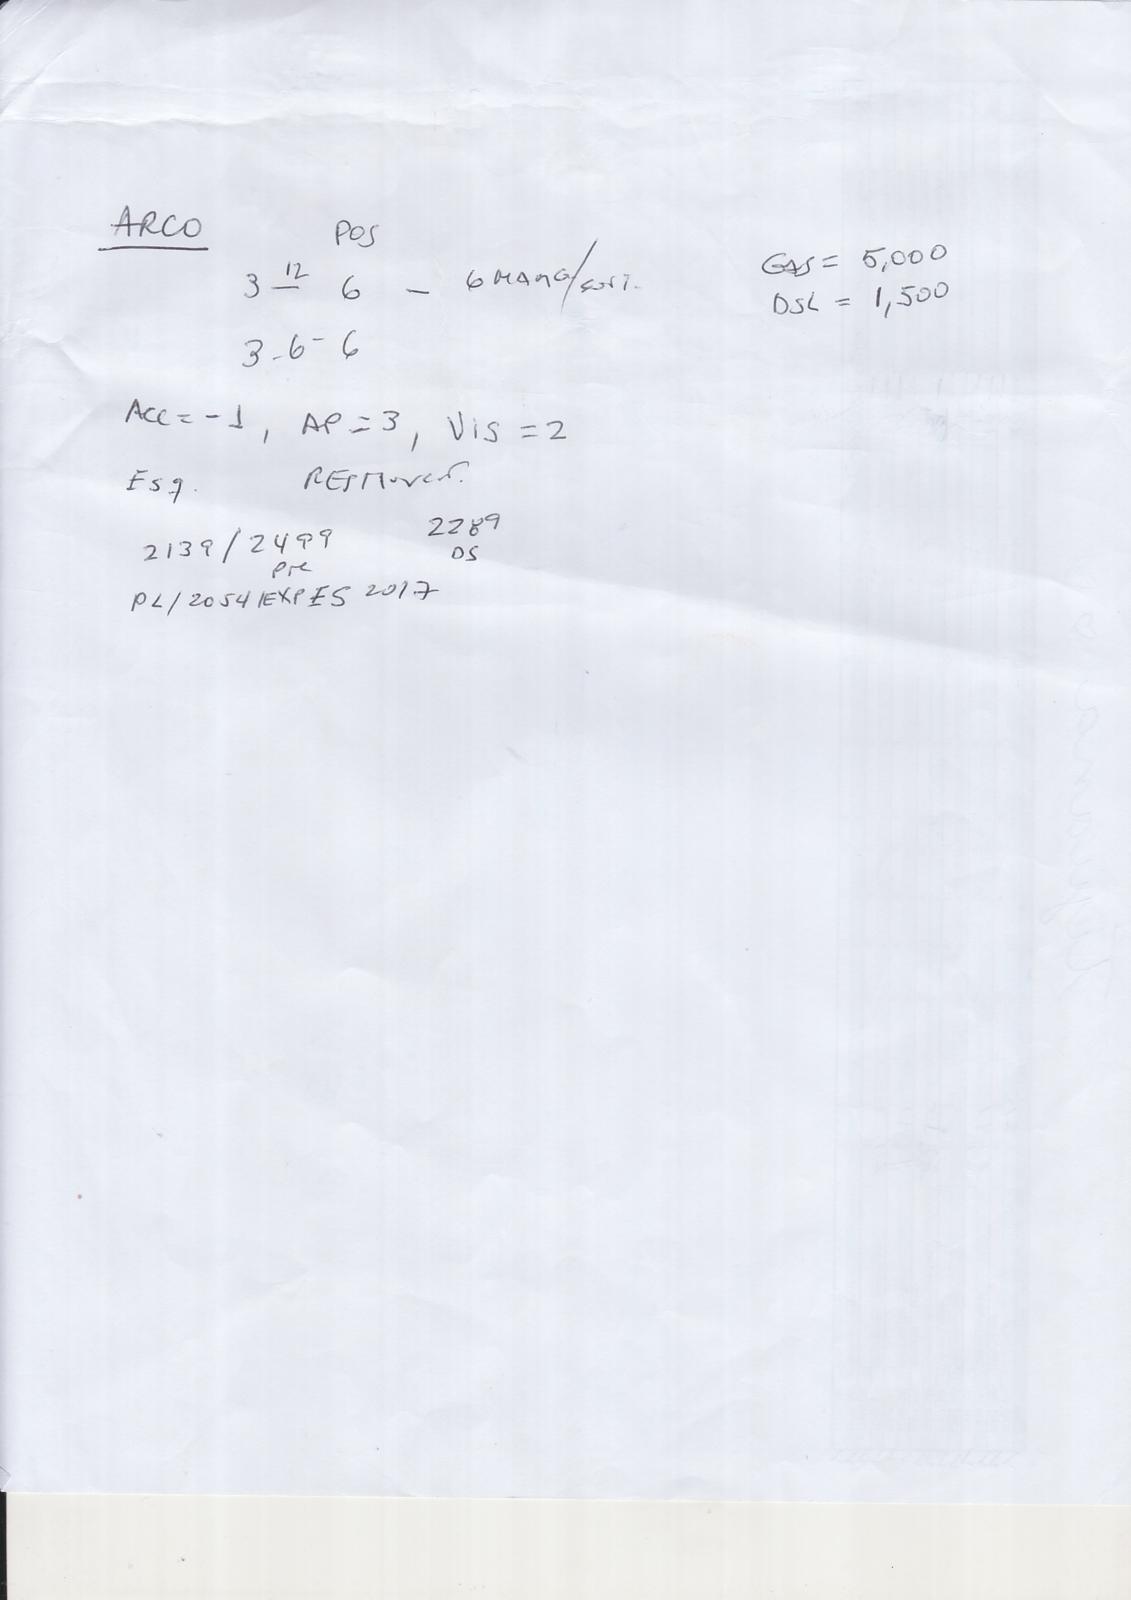 ARCO
POS
3 - 12 6 - 6 MANG/
GAS = 5,000
DSL = 1,500
3-6-6
Acc = -1, AP = 3, Vis = 2
Esq.
2139/2499 2289
Pre DS
PL/2054/EXP/ES 2017